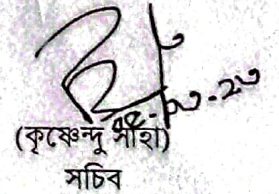 (কৃষ্ণেন্দু সাহা)
সচিব